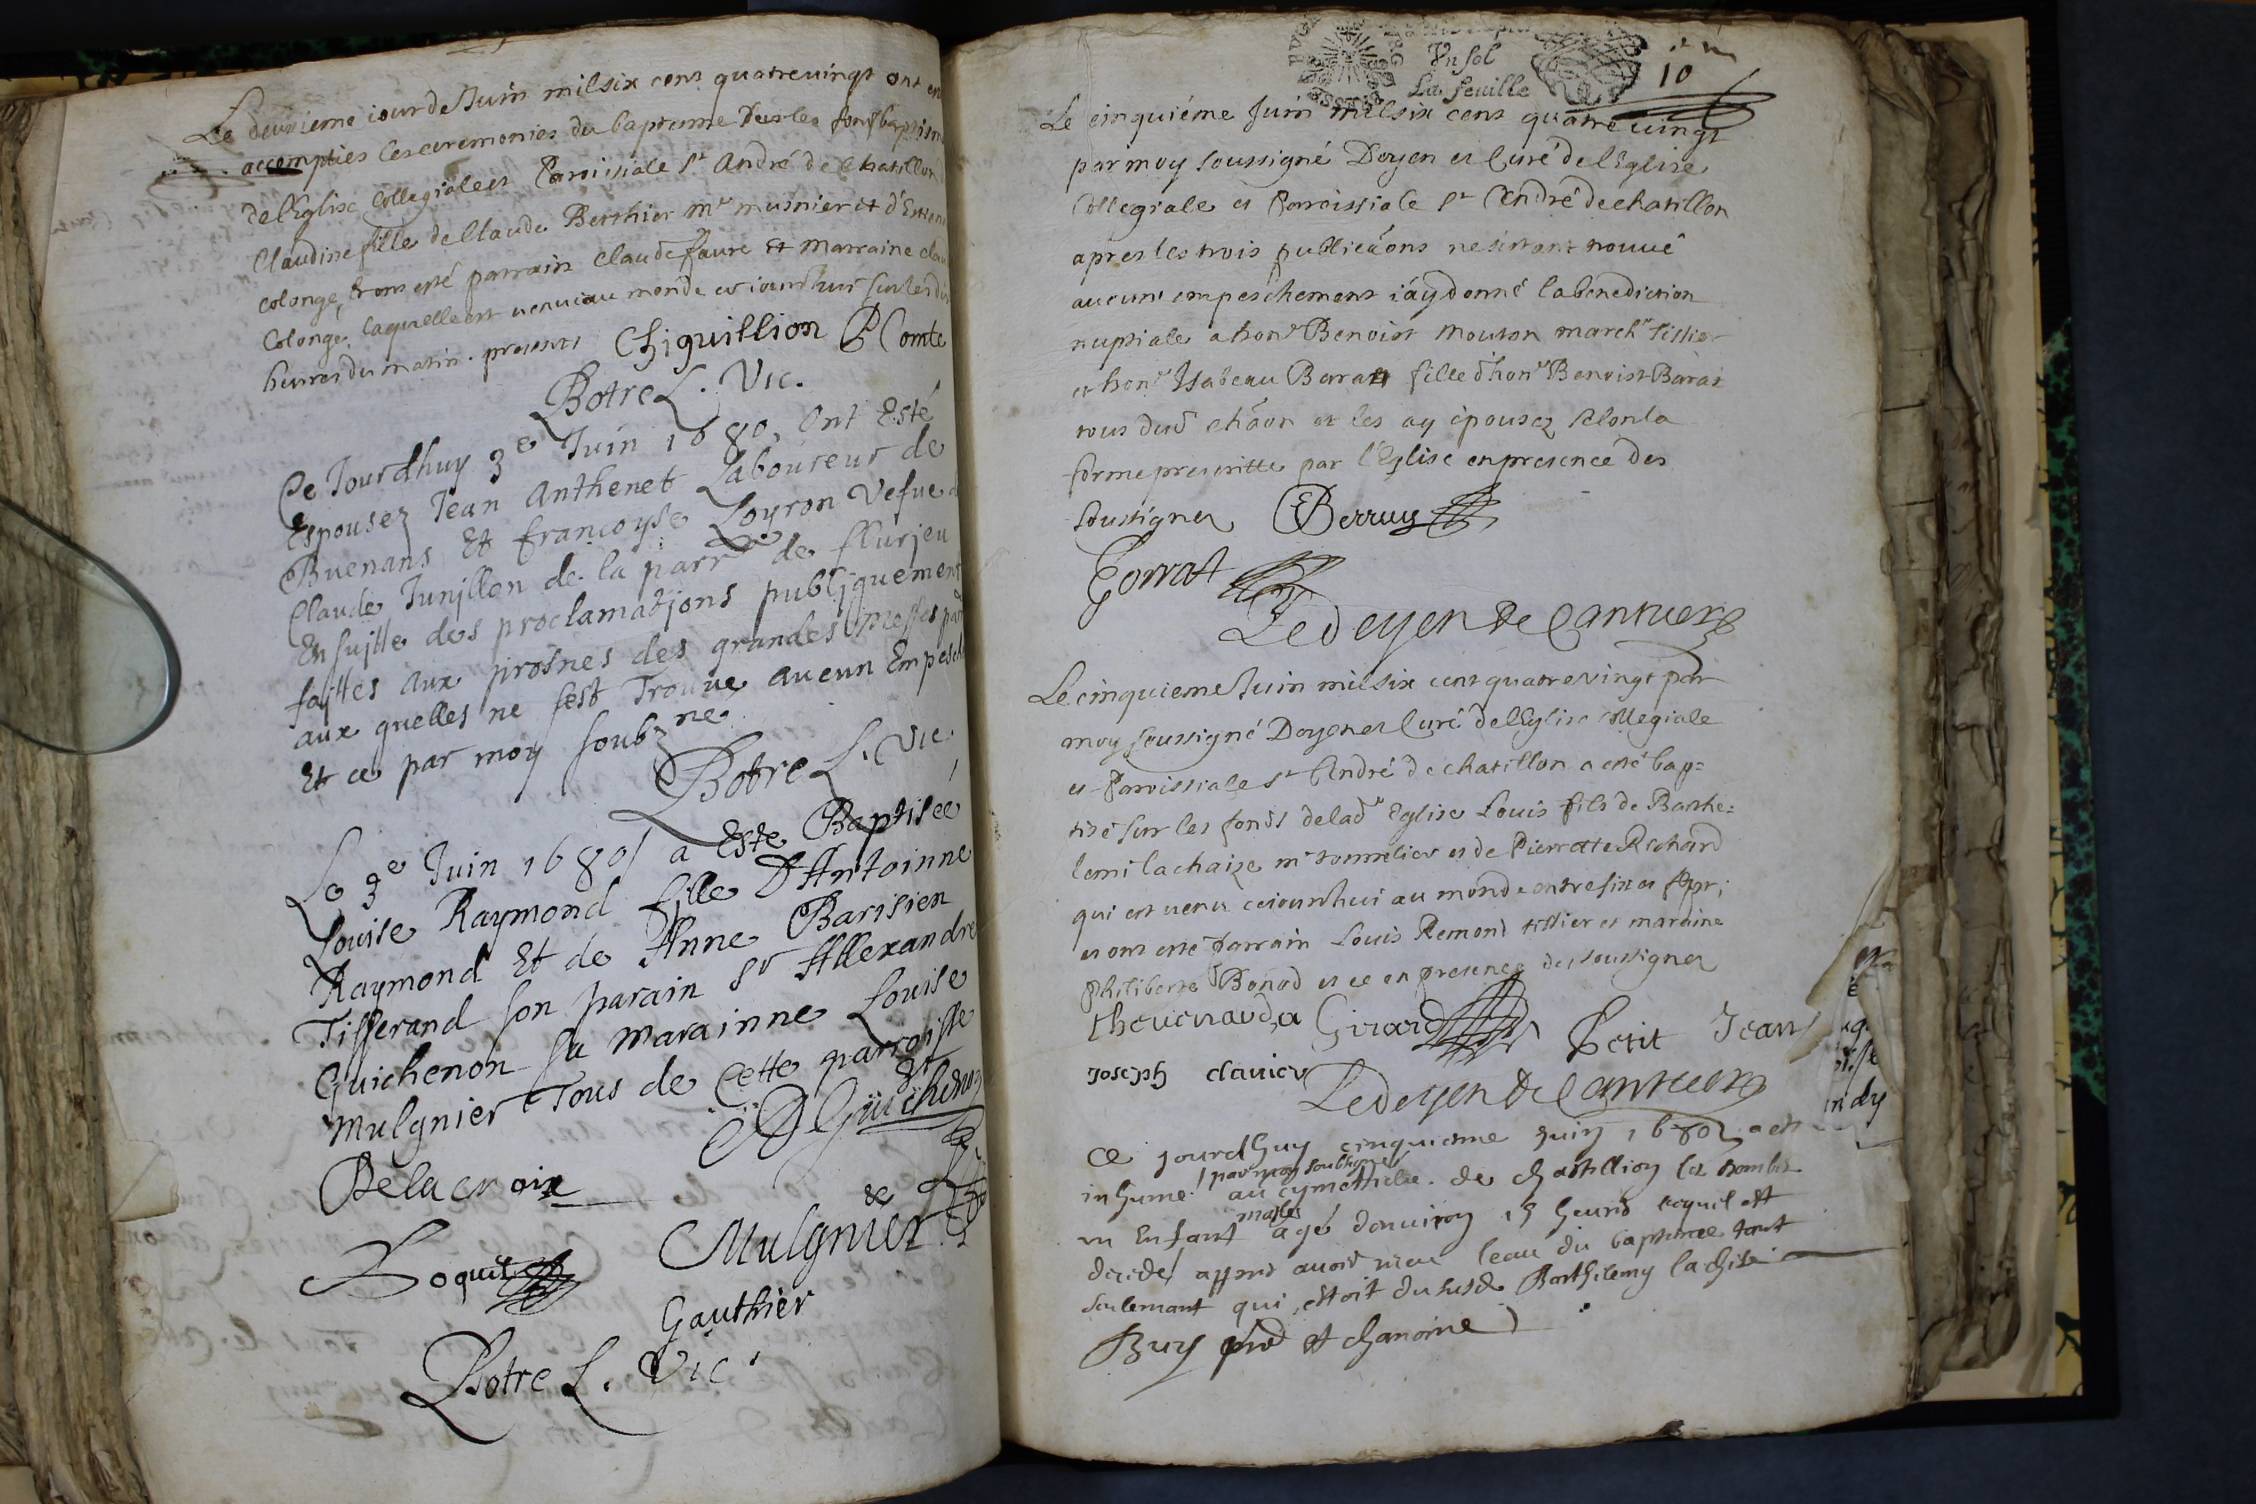 Le deuxieme iour de Juin mil six cens quatre vingt ont esté
accomplies les ceremonies du baptesme sur les fons baptism
de l'Eglise Collegiale et Paroissiale St André de Chatillon
Claudine fille de Claude Berthier mre munier et d'Estien
colonge, & ont esté parrain Claude favre et marraine clau
Colonge, laquelle est venue au monde ce iourdhui sur les dix
heures du matin. presents Chiquillion P Comte
Botre L. Vic.
Ce Jourdhuy 3e Juin 1680, Ont Esté
Espousez Jean Anthenet Laboureur de
Buenans Et françoyse Loyron Vefue d
Claude Junillon de la parr de flurjeu
En suitte des proclamations publiquement
faittes aux prosnes des grandes Messes par
aux quelles ne sest Trouue aucun Empesch
Et ce par moy soubzne
Botre L. Vic.
Le 3e Juin 1680 / a Este Baptisée
Louise Raymond fille D'Antoinne
Raymond Et de Anne Barisien
Tisserand son parain Sr Allexandre
Guichenon Sa Marainne Louise
Mulgnier Tous de Cette parroisse
A Guichenon
Delacroix
Boquet de Mulgnier
Gauthier
Botre L. Vic.
Vn sol
La feuille
10
Le cinquiéme Juin mil six cens quatre vingt
par moy soussigné Doyen et Curé de l'Eglise
Collegiale et Paroissiale St André de chatillon
apres les trois publicãons ne s'estant trouué
aucuns empeschemens i'ay donné la benediction
nuptiale a honr Benoist Mouton marchr tissier
et honr Isabeau Barat fille d'honr Benoist Barat
tous dud chãon et les ay épousez selon la
forme prescritte par l'Eglise en presence des
soussignez Berruy
Gorrat
Le doyen de Cantuer
Le cinquieme Juin mil six cent quatre vingt par
moy soussigné Doyen et Curé de l'Eglise Collegiale
et Paroissiale St André de chatillon a esté bap=
tisé sur les fonds de lad Eglise Louis fils de Barthe=
lemi la chaize mr tonnelier et de Pierrette Richard
qui est venu ceiourdhui au monde entre six et sept;
et ont esté parrain Louis Remond tissier et maraine
Philiberte Bonod et ce en presence des soussignez
theuenard Girard Petit Jean
Joseph clavier
Le doyen de Cantuer
Ce jourdhuy cinquiesme Juin 1680 a esté
inhumé / par moy soubsigné / au cymethiere de chastillion les dombes
un Enfant masles agé denuiron 15 heures lequel est
decedé appres auoir receu leau du baptesme tant
seulemant qui estoit du susd Barthelemy la chise
Buy pre et chanoine